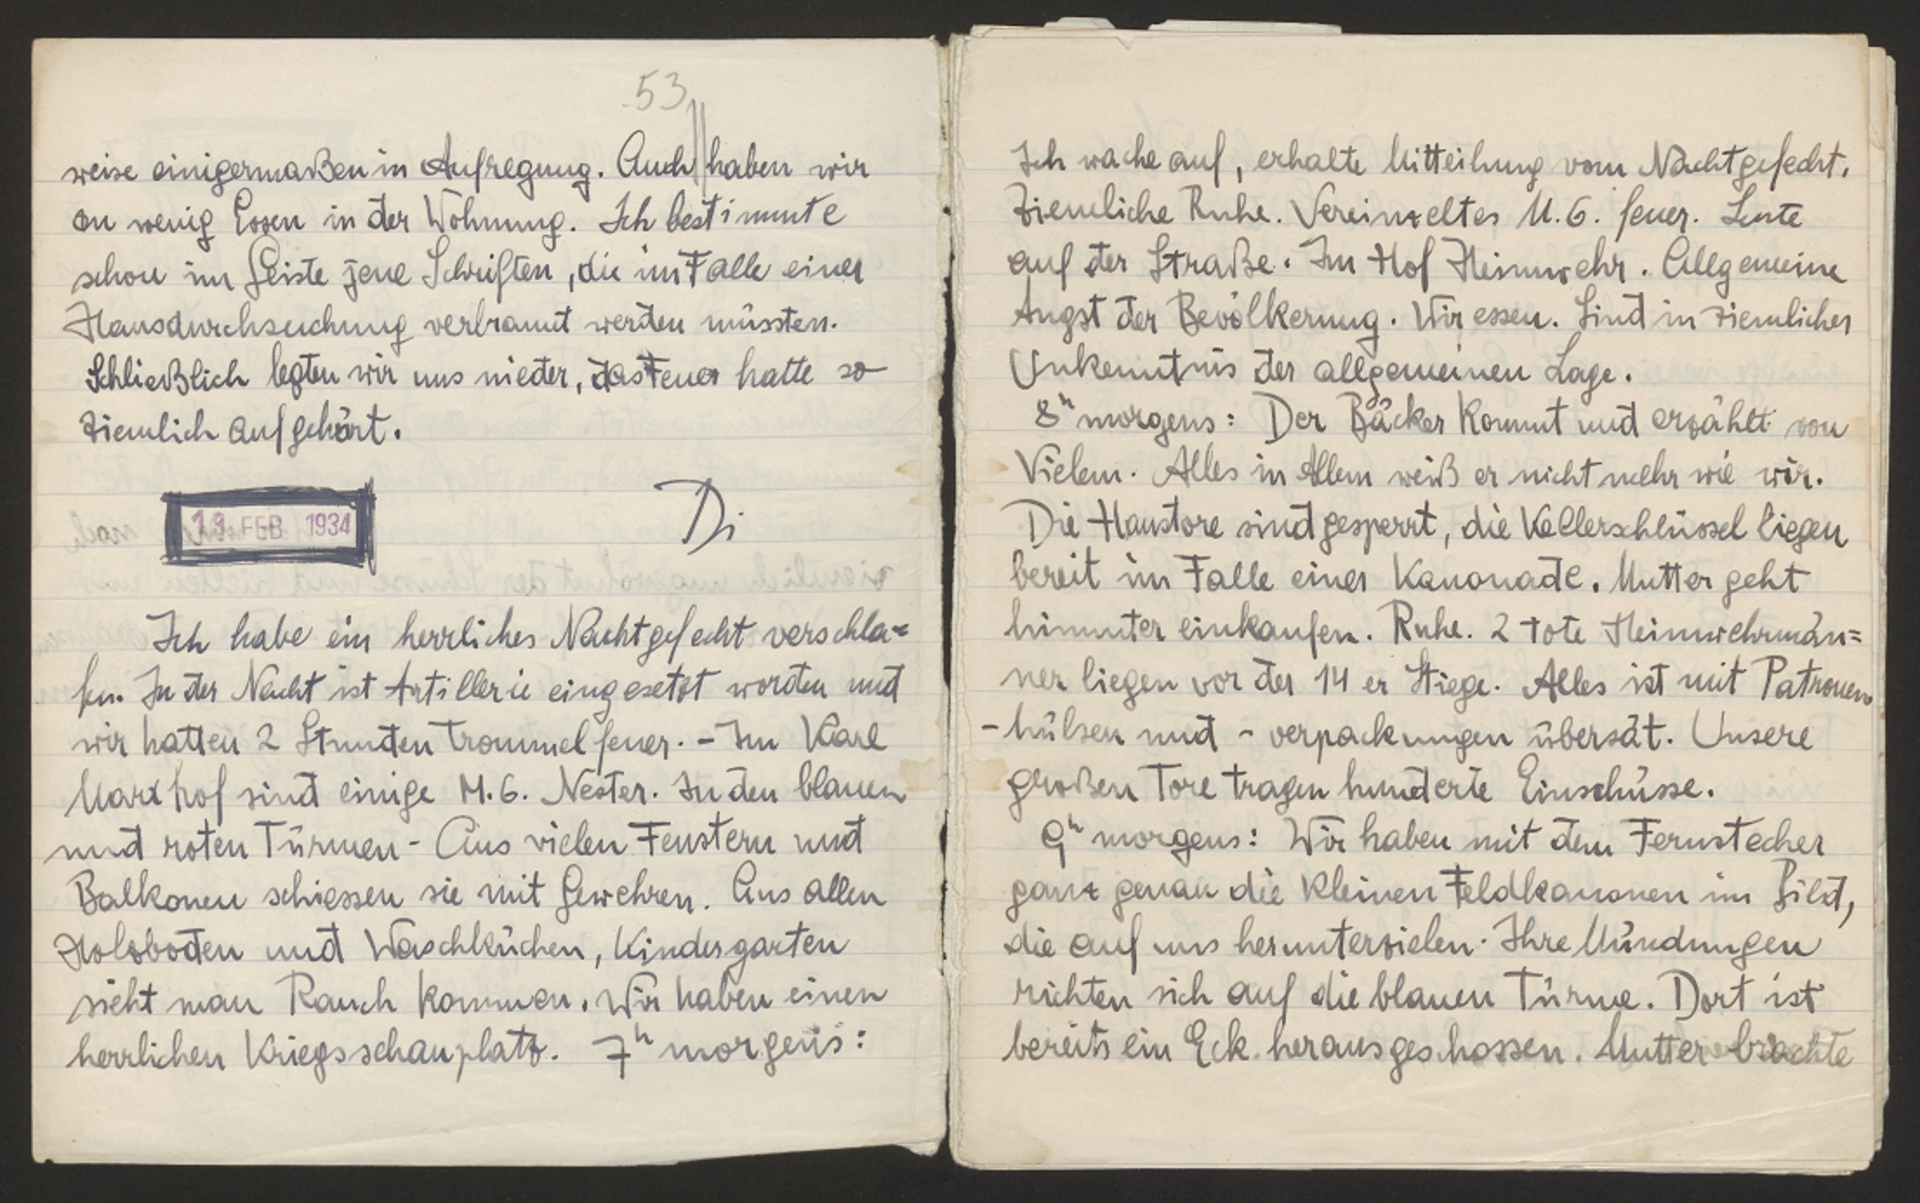 53
weise einigermaßen in Aufregung. Auch haben wir
zu wenig Essen in der Wohnung. Ich bestimmte
schon im Geiste jene Schriften, die im Falle einer
Hausdurchsuchung verbrannt werden müssten.
Schließlich legten wir uns nieder, das Feuer hatte so
ziemlich aufgehört.
13. FEB 1934
Di
Ich habe ein herrliches Nachtgefecht verschla=
fen. In der Nacht ist Artillerie eingesetzt worden und
wir hatten 2 Stunden Trommelfeuer. - Im Karl
Marxhof sind einige M.G. Nester. In den blauen
und roten Türmen - Aus vielen Fenstern und
Balkonen schiessen sie mit Gewehren. Aus allen
Holzboden und Waschküchen, Kindergarten
sieht man Rauch kommen. Wir haben einen
herrlichen Kriegsschauplatz. 7h morgens:
Ich wache auf, erhalte Mitteilung vom Nachtgefecht.
Ziemliche Ruhe. Vereinzeltes M.G. feuer. Leute
auf der Straße. Im Hof Heimwehr. Allgemeine
Angst der Bevölkerung. Wir essen. Sind in ziemlicher
Unkenntnis der allgemeinen Lage.
8h morgens: Der Bäcker kommt und erzählt von
Vielem. Alles in Allem weiß er nicht mehr wie wir.
Die Haustore sind gesperrt, die Kellerschlüssel liegen
bereit im Falle einer Kanonade. Mutter geht
hinunter einkaufen. Ruhe. 2 tote Heimwehrmän=
ner liegen vor der 14er Stiege. Alles ist mit Patronen
-hülsen und - verpackungen übersät. Unsere
großen Tore tragen hunderte Einschüsse.
9h morgens: Wir haben mit dem Fernstecher
ganz genau die kleinen Feldkanonen im Bild,
die auf uns herunterzielen. Ihre Mündungen
richten sich auf die blauen Türme. Dort ist
bereits ein Eck herausgeschossen. Mutter brachte